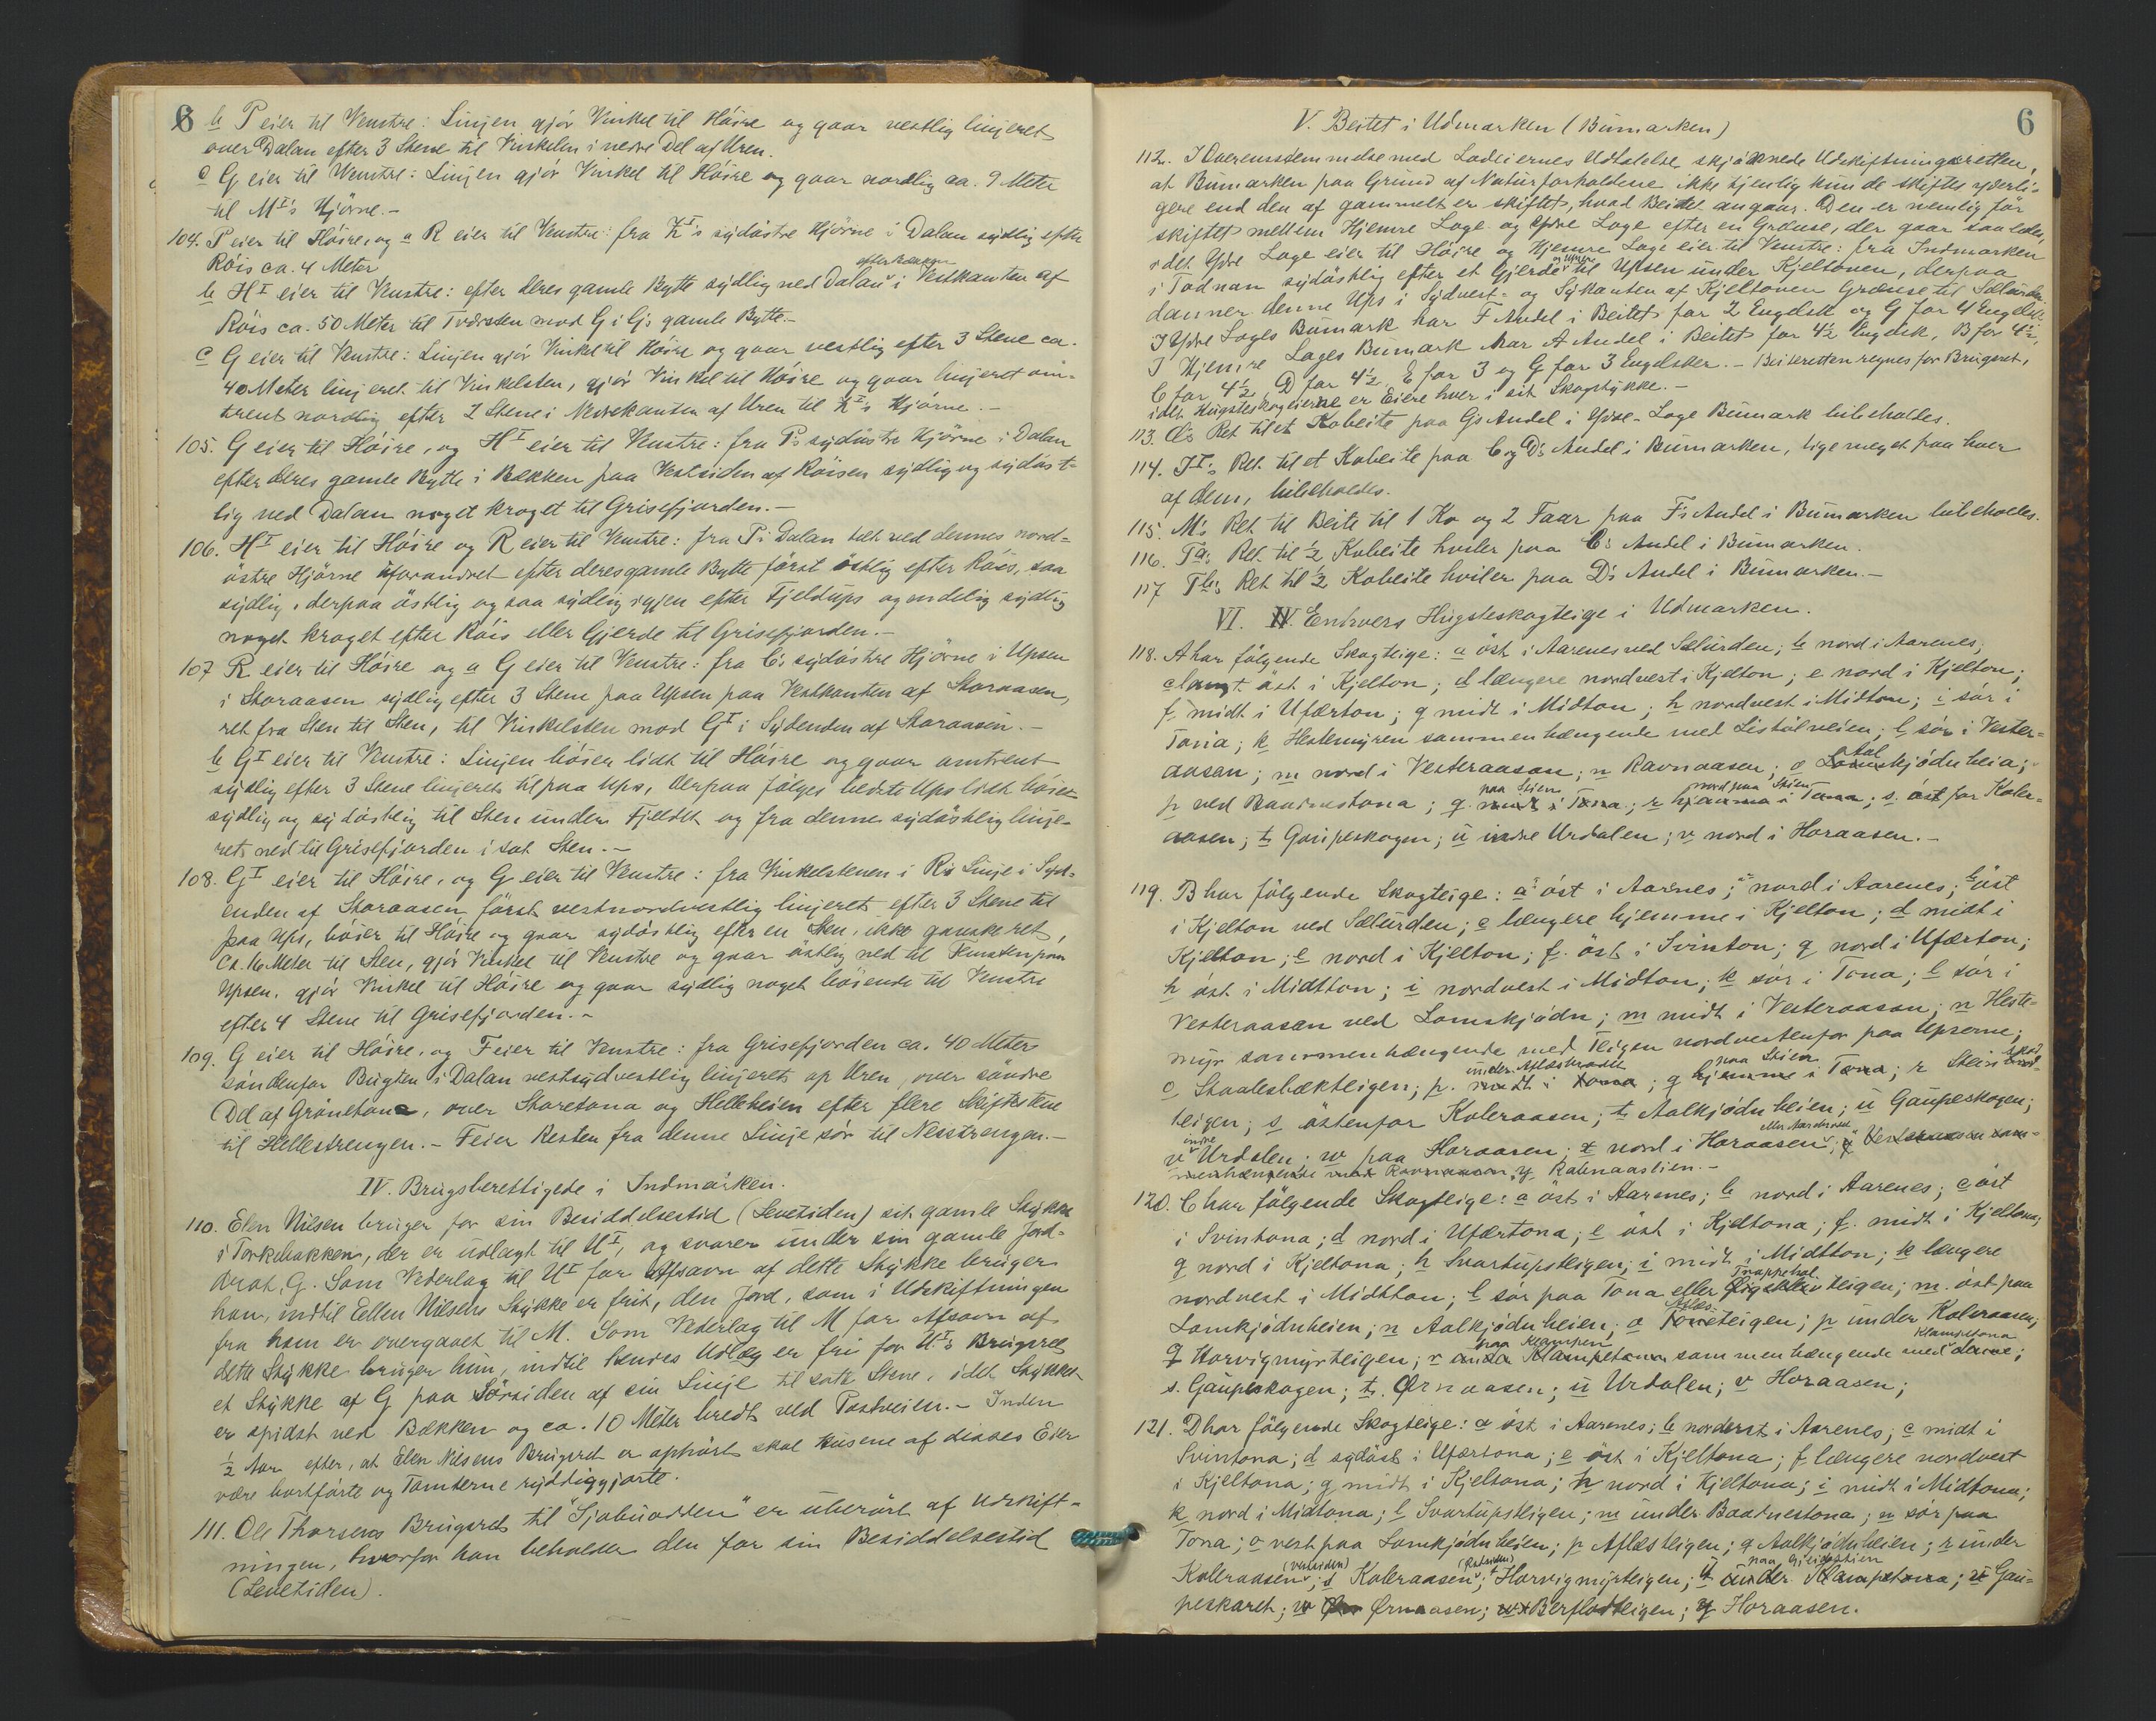 6
b P eier til Venstre: Linjen gjör Vinkel til Höire og gaar vestlig linjeret
over Dalan efter 3 Stene til Vinkelen i nedre Del af Uren.
c G eier til Venstre: Linjen gjör Vinkel til Höire og gaar nordlig ca. 9 Meter
til M I's Hjörne.-
104. P eier til Höire, og a R eier til Venstre: fra K I's sydöstre Hjörne i Dalan sydlig efter
Röis ca. 4 Meter
efter Bækken
b H I eier til Venstre: efter deres gamle Bytte sydlig ned Dalan i Vestkanten af
Röis ca. 50 Meter til Tværsten mod G i G's gamle Bytte.-
c G eier til Venstre: Linjen gjör Vinkel til Höire og gaar vestlig efter 3 Stene ca.
40 Meter linjeret til Vinkelsten, gjör Vinkel til Höire og gaar linjeret om-
trent nordlig efter 2 Stene i Nedrekanten af Uren til K I's Hjörne.-
105. G eier til Höire, og H I eier til Venstre: fra P's sydöstre Hjörne i Dalan
efter deres gamle Bytte i Bækken paa Vestsiden af Röisen sydlig og sydöst-
lig ned Dalan noget kroget til Grisefjorden.-
106. H I eier til Höire og R eier til Venstre: fra P i Dalan tæt ved dennes nord-
östre Hjörne uforandret efter deres gamle Bytte först östlig efter Röis, saa
sydlig, derpaa östlig og saa sydlig igjen efter Fjeldups og endelig sydlig
noget kroget efter Röis eller Gjerde til Grisefjorden.-
107 R eier til Höire og a G eier til Venstre: fra C's sydöstre Hjörne i Upsen
i Storaasen sydlig efter 3 Stene paa Upsen paa Vestkanten af Storaasen,
ret fra Sten til Sten, til Vinkelsten mod G I i Sydenden af Storaasen.-
b G I eier til Venstre: Linjen böier lidt til Höire og gaar omtrent
sydlig efter 3 Stene linjeret til paa Ups, derpaa fölges bedste Ups lidt böiet
sydlig og sydöstlig til Sten under Fjeldet og fra denne sydöstlig linje-
ret ned til Grisefjorden i sat Sten.-
108. G I eier til Höire, og G eier til Venstre: fra Vinkelstenen i R's Linje i Syd-
enden af Storaasen först vestnordvestlig linjeret efter 3 Stene til
paa Ups, böier til Höire og gaar sydöstlig efter en Sten, ikke ganske ret,
ca. 16 Meter til Sten, gjör Vinkel til Venstre og gaar östlig ned til paa
Upsen, gjör Vinkel til Höire og gaar sydlig noget böiende til Venstre
efter 4 Stene til Grisefjorden.-
109. G eier til Höire, og F eier til Venstre: fra Grisefjorden ca. 40 Meter
söndenfor Bugten i Dalan vestsydvestlig linjeret op Uren, over söndre
Del af Grönetona, over Storetona og Helleheien efter flere Skiftestene
til Hellestrengen.- F eier Resten fra denne Linje sör til Nesstrengen.-
IV. Brugsberettigede i Indmarken.
110. Elen Nilsen bruger for sin Besiddelsestid (Levetiden) sit gamle Stykke
i Torkebakken, der er udlagt til U I, og svarer under sin gamle Jord-
drot, G. Som Vederlag til U I for Afsavn af dette Stykke bruger
han, indtil Ellen Nilsens Stykke er frit, den Jord, som i Udskiftningen
fra ham er overgaaet til M. Som Vederlag til M for Afsavn af
dette Stykke bruger hun, indtil hendes Udlæg er fri for U I's Brugsret
et Stykke af G paa Sörsiden af sin Linje til satte Stene, idet Stykket
er spidst ved Bækken og ca. 10 Meter bredt ved Postveien.- Inden
½ Aar efter, at Elen Nilsens Brugsret er ophört skal Husene af disses Eier
være bortförte og Tomterne ryddiggjorte.
111. Ole Thorsens Brugsret til "Sjobuodden" er uberört af Udskift-
ningen, hvorfor han beholder den for sin Besiddelsestid
(Levetiden).
6
V. Beitet i Udmarken (Bumarken)
112. I Overensstemmelse med Lodeiernes Udtalelse skjönnede Udskiftningsretten,
at Bumarken paa Grund af Naturforholdene ikke tjenlig kunde skiftes yderli-
gere end den af gammelt er skiftet, hvad Beitet angaar. Den er nemlig för
skiftet mellem Hjemre Loge og Ydre Loge efter en Grænse, der gaar saaledes,
idet Ydre Loge eier til Höire og Hjemre Loge eier til Venstre: fra Indmarken
i Todnan sydöstlig efter et Gjerde til Upsen under Kjeltonen, derpaa
danner denne Ups i Sydvest- og Sykanten af Kjeltonen Grænse til Sælurden.
I Ydre Loges Bumark har F Andel i Beitet for 2 Engdsk og G for 4 Engdsk.
I Hjemre Loges Bumark har A Andel i Beitet for 4½ Engdsk, B for 4½,
C for 4½, D for 4½, E for 3 og G for 3 Engdsker.- Beiteretten regnes for Brugsret,
idet Hugsteskogeierne er Eiere hver i sit Skogstykke.-
113. O's Ret til et Kobeite paa G's Andel i Ydre-Loge Bumark bibeholdes.
114. I I's Ret til et Kobeite paa C og D's Andel i Bumarken, lige meget paa hver
af dem, bibeholdes.
115. M's Ret til Beite til 1 Ko og 2 Faar paa F's Andel i Bumarken bibeholdes.
116. Ta's Ret til ½ Kobeite hviler paa C's Andel i Bumarken.
117 Tb's Ret til ½ Kobeite hviler paa D's Andel i Bumarken.-
VI. IV. Enhvers Hugsteskogteige i Udmarken.
118. A har fölgende Skogteige: a öst i Aarenes ved Sælurden; b nord i Aarenes;
c langt öst i Kjelton; d længere nordvest i Kjelton; e nord i Kjelton;
f midt i Ufærton; g midt i Midton; h nordvest i Midtton; i sör i
Tona; k Hestemyren sammenhængende med Listölveien; l sör i Vester-
aasen; m nord i Vesteraasen; n Ravnaasen; o Lomskjödnheia;
Aal
paa Stien
nord paa Stien
p ved Baadnestona; q midt i Tona; r hjemme i Tona; s öst for Koler-
aasen; t Gaupeskogen; u indre Urdalen; v nord i Horaasen.-
119. B har fölgende Skogteige: a öst i Aarnes; nord i Aarenes; b öst
i Kjelton ved Sælurden; c længere hjemme i Kjelton; d midt i
Kjelton; e nord i Kjelton; f öst i Svinton; g nord i Ufærton;
h öst i Midtton; i nordvest i Midton; k sör i Tona; l sör i
Vesteraasen ved Lomskjödn; m midt i Vesteraasen; n Heste-
myr sammenhængende med Teigen nordvestenfor paa Upserne;
under Aflæsbrodtt
paa Stien
o Staalesbækteigen; p midt i tona; q hjemme i Tona; r Stein
teigen; s östenfor Koleraasen; t Aalkjödnheien; u Gaupeskogen;
indre
eller Nordre
v Urdalen; w paa Horaasen; x nord i Horaasen; y Vesteraasen sam-
menhængende med Ravnaasen; y Ravnaaslien.-
120. C har fölgende Skogteige: a öst i Aarenes; b nord i Aarenes; c öst
i Svintona; d nord i Ufærtona; e öst i Kjeltona; f midt i Kjeltona;
g nord i Kjeltona; h Svartupsteigen; i midt i Midtton; k længere
Trappehol
nordvest i Midtton; l sör paa Tona eller teigen; m öst paa
Aflæs-
Lomkjödnheien; n Aalkjödnheien; o teigen; p under Koleraasen;
paa Klampen
Klampetona
q Horvigmyrteigen; r under Klampetona sammenhængende med denne;
s. Gaupeskogen; t. Ørnaasen; u Urdalen; v Horaasen;
121. D har fölgende Skogteige: a öst i Aarenes; b norderst i Aarenes; c midt i
Svintona; d sydöst i Ufærtona; e öst i Kjeltona; f længere nordvest
i Kjeltona; g midt i Kjeltona; h nord i Kjeltona; i midt i Midtona;
k nord i Midtona; l Svartupsteigen; m under Baadnestona; n sör paa
Tona; o vest paa Lomkjödnheien; p Aflæsteigen; q Aalkjödnheien; r under
Koleraasen; s Koleraasen; t Horvigmyrteigen; u under Klampetona; v Gau-
peskaret; w Ørnaasen; x Berflodteigen; y Horaasen.